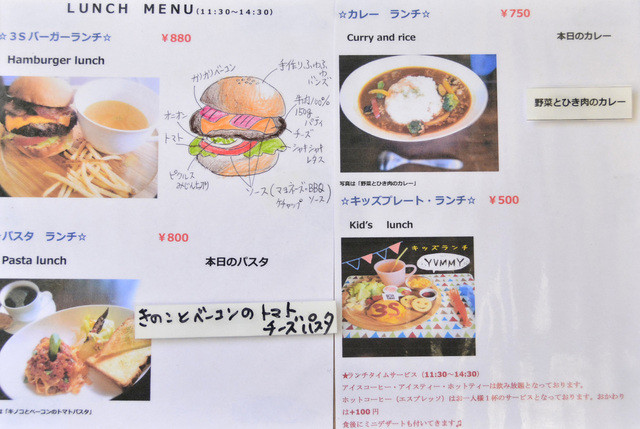 LUNCH MENU(11:30~14:30)
☆3Sバーガーランチ☆ ￥880
Hamburger lunch
カリカリベーコン
手作りふわふわ
バンズ
オニオン
牛肉100%
150g
パティ
トマト
チーズ
シャキシャキ
レタス
ピクルス
みじん切り
ソース(マヨネーズ・BBQ
ケチャップ ソース)
パスタ ランチ☆ ￥800
Pasta lunch 本日のパスタ
きのことベーコンのトマト
チーズパスタ
は「キノコとベーコンのトマトパスタ」
☆カレー ランチ☆ ￥750
Curry and rice 本日のカレー
野菜とひき肉のカレー
写真は「野菜とひき肉のカレー」
☆キッズプレート・ランチ☆ ￥500
Kid's lunch
キッズランチ
YUMMY
3S
★ランチタイムサービス (11:30~14:30)
アイスコーヒー・アイスティー・ホットティーは飲み放題となっております。
ホットコーヒー (エスプレッソ) はお一人様1杯のサービスとなっております。おかわり
は+100円
食後にミニデザートも付いてきます♫